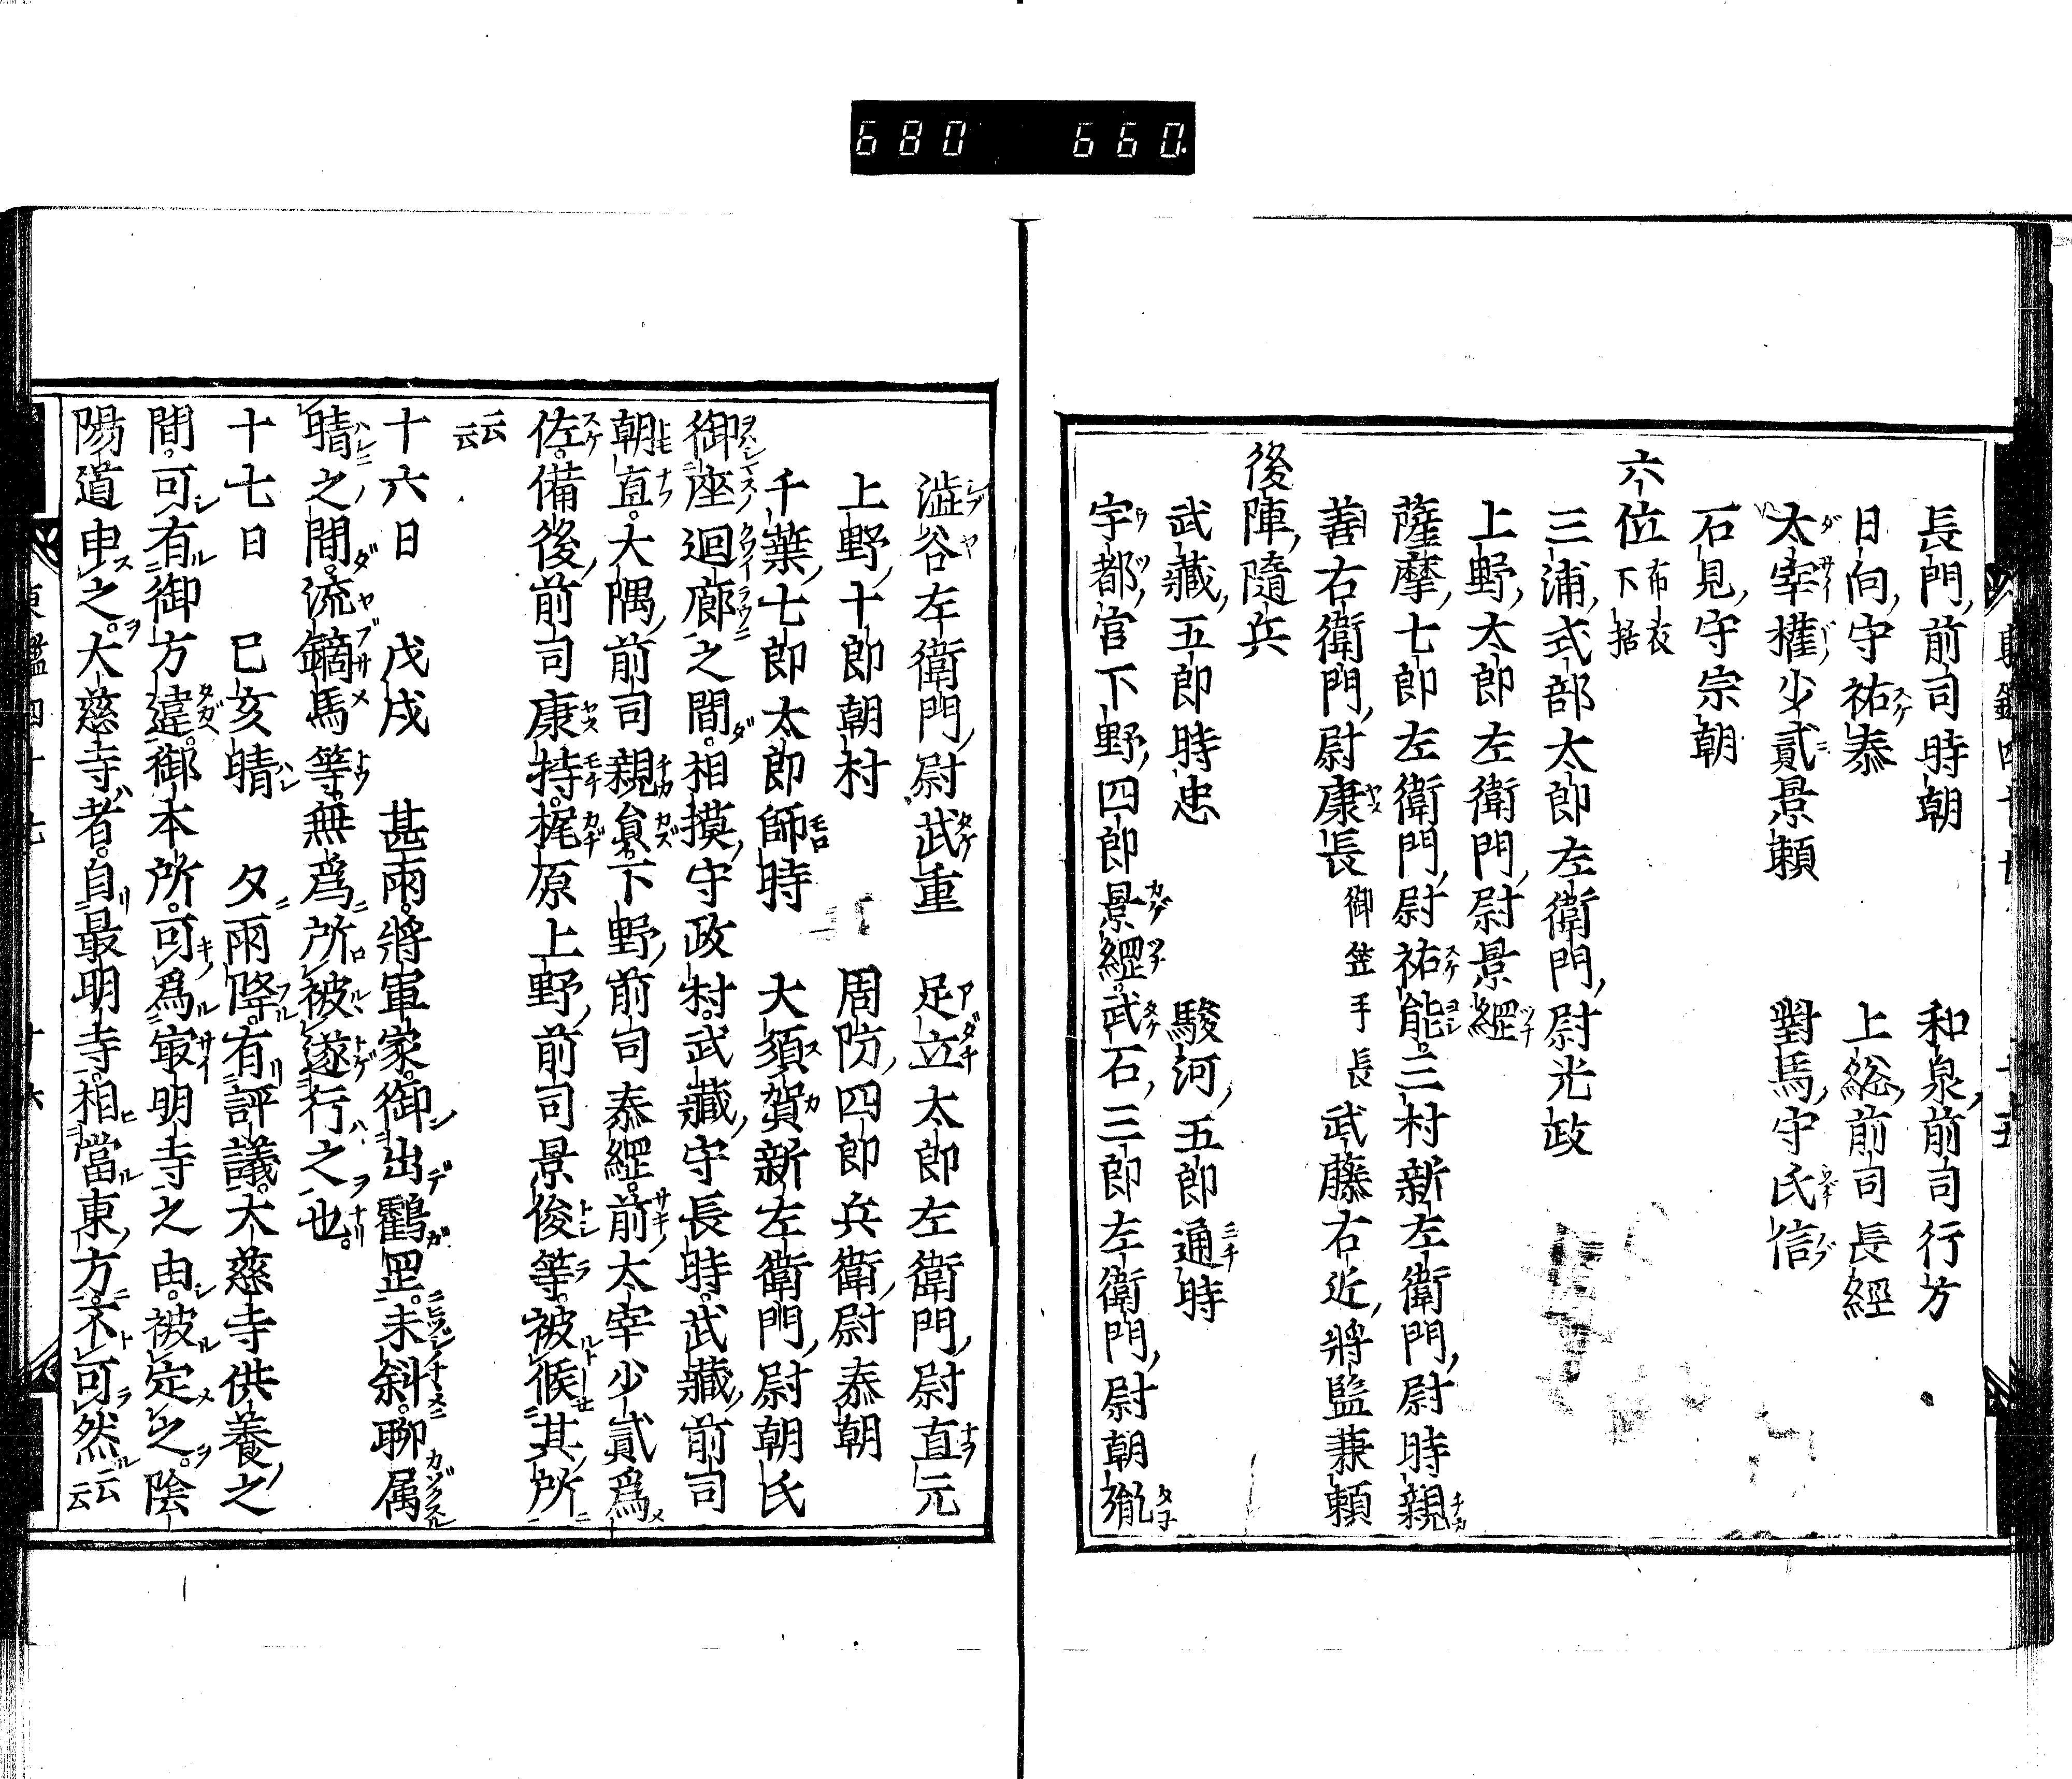 680 660
長門前司時朝 和泉前司行方
日向守祐泰 上総前司長經
太宰權少貳景頼 對馬守氏信
石見守宗朝
六位 布衣下括
三浦式部太郎左衛門尉光政
上野太郎左衛門尉景經
薩摩七郎左衛門尉祐能 三村新左衛門尉時親
善右衛門尉康長 御笠手長 武藤右近將監兼頼
後陣隨兵
武藏五郎時忠 駿河五郎通時
宇都宮下野四郎景經 武石三郎左衛門尉朝胤
澁谷左衛門尉武重 足立太郎左衛門尉直元
上野十郎朝村 周防四郎兵衛尉泰朝
千葉七郎太郎師時 大須賀新左衛門尉朝氏
御座迴廊之間。相摸守政村。武藏守長時。武藏前司
朝直。大隅前司親員。下野前司泰經。前太宰少貳爲
佐。備後前司康持。梶原上野前司景俊等。被候其所
云云
十六日 戊戌 甚雨。將軍家。御出鸖罡。未斜。聊属
晴之間。流鏑馬等。無爲所被遂行之也。
十七日 己亥晴 夕雨降。有評議。大慈寺供養之
間。可有御方違。御本所。可爲最明寺之由。被定之。陰
陽道申之。大慈寺者。自最明寺。相當東方。不可然云云